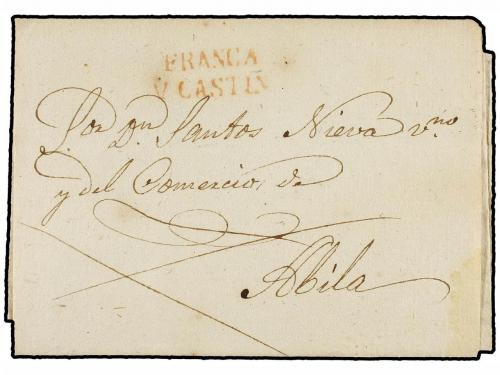 FRANCA
V. CASTIN
Por Dn Santos Nieva vno
y del Comercio, de
Abila